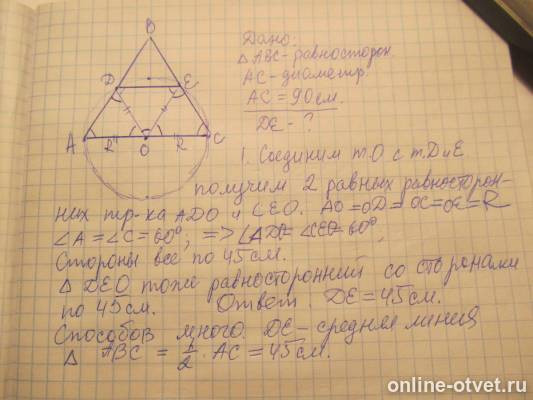 B
Дано:
△ ABC - равносторон.
D E
AC - диаметр.
AC = 90 см.
DE - ?
A R O R C
1. Соединим т. O с т. D и E
получим 2 равных равносторон-
них тр-ка ADO и CEO. AO = OD = OC = OE = R
∠A = ∠C = 60°, => ∠ADO = ∠CEO = 60°,
Стороны все по 45 см.
△ DEO тоже равносторонний со сторонами
по 45 см. Ответ. DE = 45 см.
Способов много. DE - средняя линия
△ ABC = 1/2 · AC = 45 см.
online-otvet.ru